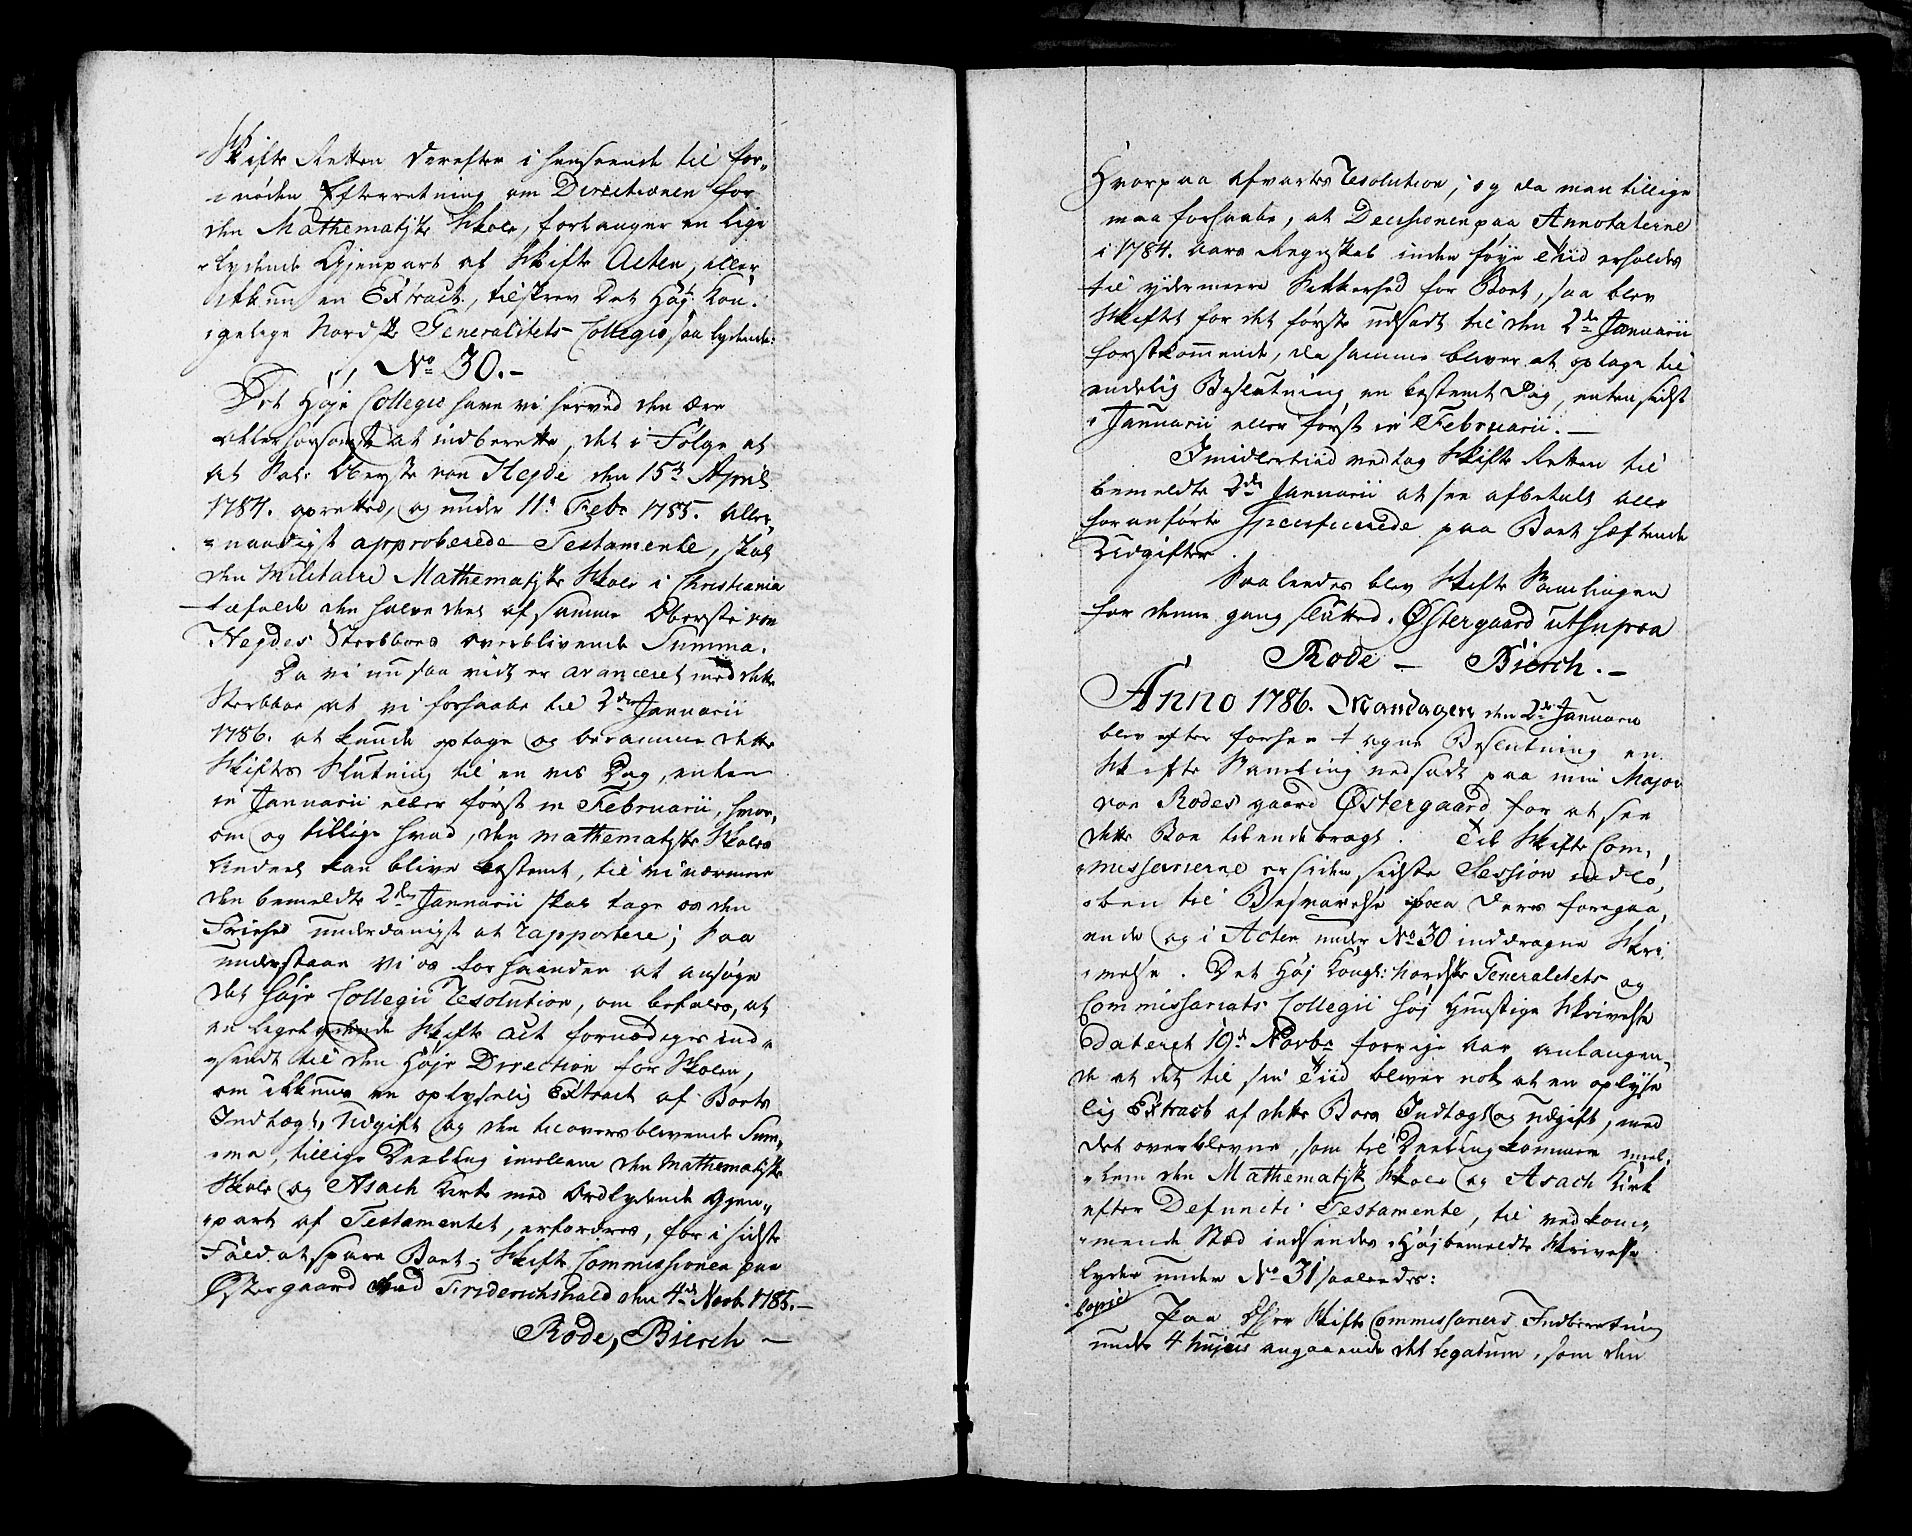 Skifte Retten derefter i henseende til for-
nøden Efterretning om Directionen for
den Mathematiske Skole, forlanger en lige
lydende Gjenpart af Skifte Acten, eller
ikkun en Extract, tilskrev Det Høj Kon-
gelige Nordske Generalitets-Collegio saa lydende:
No 30.-
Det Høje Collegio have vi herved den ære
allerhørsomst at indberette, det i Følge at
at Sal: Oberste von Hejde den 15de April
1784. oprettede, og under 11te Febr 1785. Aller-
naadigst approberede Testamente, skal
den Militaire Mathematiske Skole i Christiania
tæfalde den halve deel af samme Oberste von
Hejdes Sterbboes overblivende Summa.
Da vi nu saa vidt er avanceret med dette
Sterbboe at vi forhaabe til 2den Januarii
1786. at kunde optage og beramme dette
Skiftes Slutning til en vis Dag, enten
in Januarii eller først in Februarii, hvor-
om og tillige hvad, den mathematiske Skoles
Andeel kan blive bestemt, til vi nærmere
den bemeldte 2den Januarii skal tage os den
Friehed underdanigst at rapportere; Saa
understaae vi os forhaanden at ansøge
det høje Collegii Resolution, om befales, at
en ligelydende Skifte Act fornødiges ind-
sendt til den Høje Direction for Skolen,
om ikkuns en oplyselig Extract af Boets
Indtægt, Udgift og den tilovers blevende Sum-
ma, tillige Deeling imellem den Mathematiske
Skole og Asach Kirke med Ordlydende Gjen-
part af Testamentet, erfordres, for i sidste
Fald at spare Boet. Skifte Commissionen paa
Østergaard ved Friderichshald den 4de Novbr 1785.-
Rode, Biesch -
Hvorpaa afvartes Resolution; og da man tillige
maa forhaabe, at Decisionen paa Annotaterne
i 1784. aars Regnskab inden føye Tiid erholdes
til ydermeere Sikkerhed for Boet, saa blev
Skiftet for det første udsadt til den 2den Januarii
førstkommende, da samme bliver at optage til
endelig Beslutning en bestemt Dag, enten sidst
i Januarii eller først in Februarii.-
Imidlertiid vedtog Skifte Retten til
bemeldte 2den Januarii at see afbetalt alle
foranførte specificerede paa Boet hæftende
Udgifter.
Saaledes blev Skifte Samlingen
for denne gang sluttet. Østergaard ut supra
Rode - Biesch.-
Anno 1786. Mandagen den 2den Januarii
blev efter forhen tagne Beslutning en
Skifte Samling nedsadt paa min Major
von Rodes gaard Østergaard for at see
dette Boe tilendebragt. Til Skifte Com-
missarierne er siden sidste Session indlø-
ben til Besvarelse paa Deres foregaa-
ende og i Acten under No 30 inddragne Skri-
velse. Det Høj Kongl: Nordske Generalitets og
Commissariats Collegii høj Gunstige Skrivelse
dateret 19de Novbr forrige Aar anlangen-
de at det til sin Tiid bliver nok at en oplyse
lig Extract af dette Boes Indtægt og Udgift, med
det overblevne, som til Deeling kommer imel-
lem den Mathematiske Skole og Asach Kirk
efter Defuncti Testamente, til vedkom-
mende Stæd indsendes. Højbemeldte Skrivelse
lyder under No 31 saaledes:
Copie
Paa Hrr Skifte Commissairers Indberetning
under 4 hujus angaaende det Legatum, som den